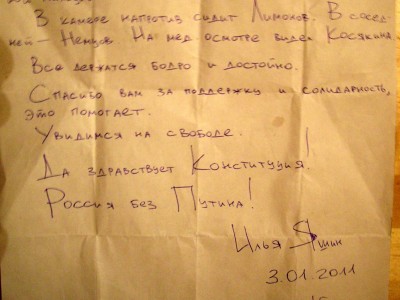 В камере напротив сидит Лимонов. В сосед-
ней – Немцов. На мед. осмотре видел Косякина.
Все держатся бодро и достойно.
Спасибо вам за поддержку и солидарность,
это помогает.
Увидимся на свободе.
Да здравствует Конституция!
Россия без Путина!
Илья Яшин
3.01.2011